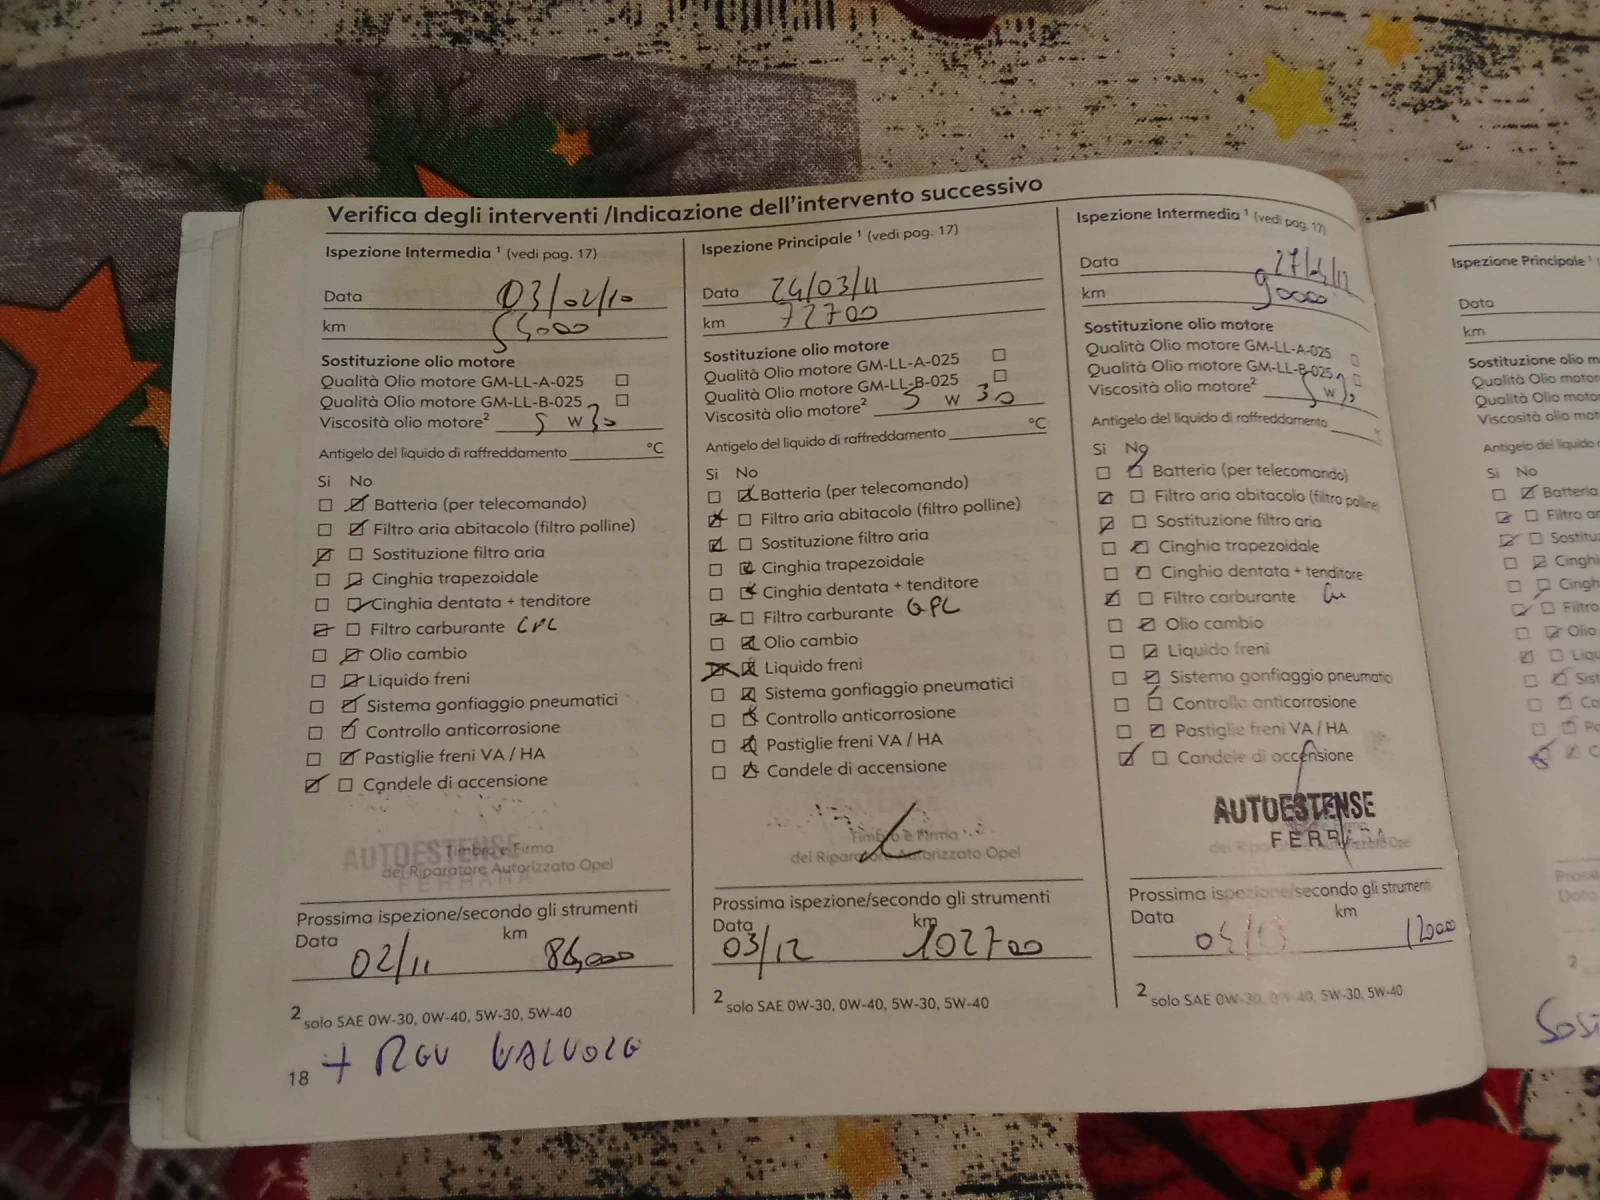 Verifica degli interventi /Indicazione dell'intervento successivo
Ispezione Intermedia ¹ (vedi pag. 17)
Data 03/02/10
km
Sostituzione olio motore
Qualità Olio motore GM-LL-A-025
Qualità Olio motore GM-LL-B-025
Viscosità olio motore² 5 W 30
Antigelo del liquido di raffreddamento °C
Si No
Batteria (per telecomando)
Filtro aria abitacolo (filtro polline)
Sostituzione filtro aria
Cinghia trapezoidale
Cinghia dentata + tenditore
Filtro carburante GPL
Olio cambio
Liquido freni
Sistema gonfiaggio pneumatici
Controllo anticorrosione
Pastiglie freni VA / HA
Candele di accensione
AUTOESTENSE
FERRARA
Timbro e Firma
del Riparatore Autorizzato Opel
Prossima ispezione/secondo gli strumenti
Data km
02/11
2 solo SAE 0W-30, 0W-40, 5W-30, 5W-40
18 + REG VALVOLE
Ispezione Principale ¹ (vedi pag. 17)
Data 24/03/11
km 72700
Sostituzione olio motore
Qualità Olio motore GM-LL-A-025
Qualità Olio motore GM-LL-B-025
Viscosità olio motore² 5 W 30
Antigelo del liquido di raffreddamento °C
Si No
Batteria (per telecomando)
Filtro aria abitacolo (filtro polline)
Sostituzione filtro aria
Cinghia trapezoidale
Cinghia dentata + tenditore
Filtro carburante GPL
Olio cambio
Liquido freni
Sistema gonfiaggio pneumatici
Controllo anticorrosione
Pastiglie freni VA / HA
Candele di accensione
Timbro e Firma
del Riparatore Autorizzato Opel
Prossima ispezione/secondo gli strumenti
Data km
03/12 102700
2 solo SAE 0W-30, 0W-40, 5W-30, 5W-40
Ispezione Intermedia ¹ (vedi pag. 17)
Data
km 90000
Sostituzione olio motore
Qualità Olio motore GM-LL-A-025
Qualità Olio motore GM-LL-B-025
Viscosità olio motore² 5 W
Antigelo del liquido di raffreddamento
Si No
Batteria (per telecomando)
Filtro aria abitacolo (filtro polline)
Sostituzione filtro aria
Cinghia trapezoidale
Cinghia dentata + tenditore
Filtro carburante
Olio cambio
Liquido freni
Sistema gonfiaggio pneumatici
Controllo anticorrosione
Pastiglie freni VA / HA
Candele di accensione
AUTOESTENSE
FERRARA
Prossima ispezione/secondo gli strumenti
Data km
2 solo SAE 0W-30, 0W-40, 5W-30, 5W-40
Ispezione Principale ¹
Data
km
Sostituzione olio m
Qualità Olio motor
Qualità Olio moto
Viscosità olio mot
Antigelo del liquido
Si No
Batteria
Filtro ar
Sostitu
Cinghi
Cingh
Filtro
Olio
Liqu
Sist
Co
2
Sosti